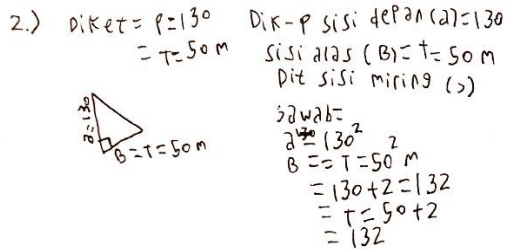 2.) Diket = P = 130
= T = 50 m
a = 130
B = T = 50 m
Dik - P sisi depan (a) = 130
sisi alas (B) = t = 50 m
Dit sisi miring (s)
Jawab =
a = 130²
B = = T = 50² m
= 130 + 2 = 132
= T = 50 + 2
= 132